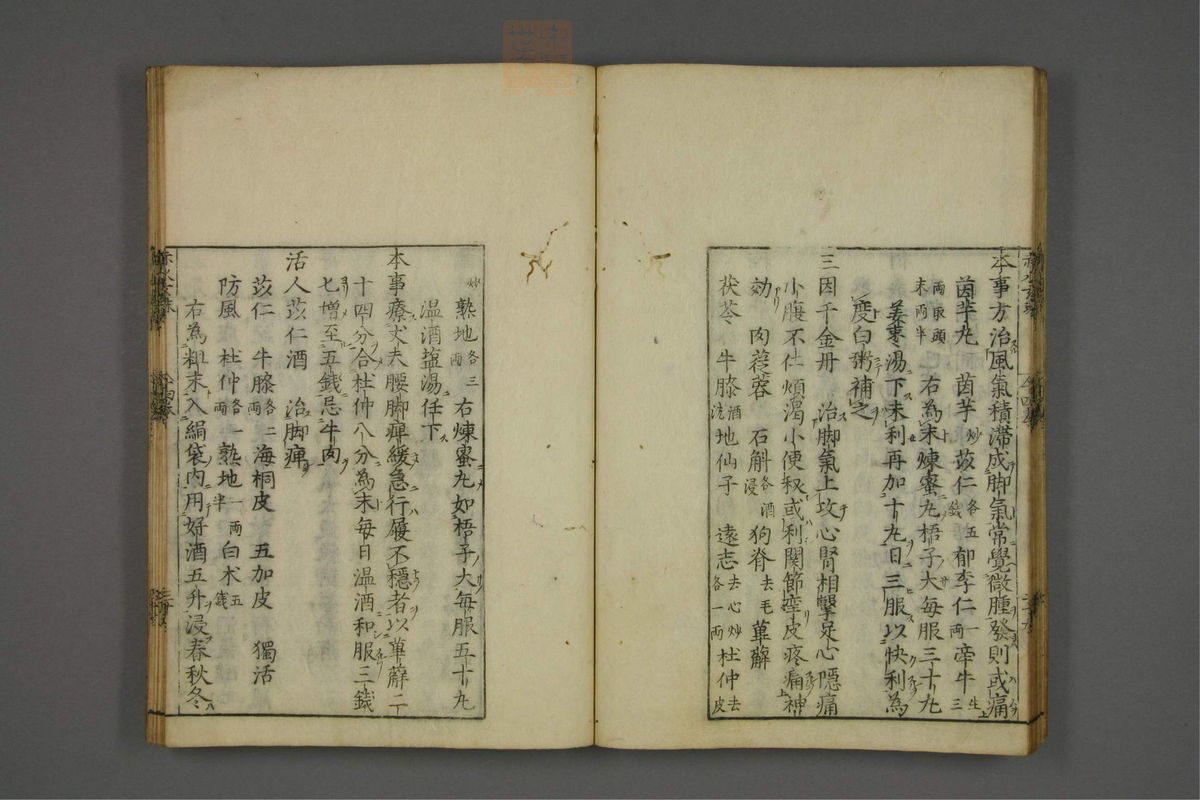 本事方治風氣積滯成脚氣常覺微腫發則或痛
茵芋丸 茵芋炒苡仁各五錢郁李仁一兩牽牛生三
兩取頭末兩半 右為末煉蜜丸梧子大每服三十丸
姜棗湯下未利再加十丸日三服以快利為
度白粥補之
三因千金丹 治脚氣上攻心腎相擊足心隱痛
小腹不仁煩渴小便秘或利關節攣皮疼痛神
効 肉蓯蓉 石斛各酒浸狗脊去毛萆薢
茯苓 牛膝酒洗地仙子 遠志去心炒各一兩杜仲去皮
炒熟地各三兩 右煉蜜丸如梧子大每服五十丸
温酒盬湯任下
本事療丈夫腰脚痺緩急行履不穩者以萆薢二
十四分合杜仲八分為末每日温酒和服三錢
七增至五錢忌牛肉
活人苡仁酒 治脚痺
苡仁 牛膝各二兩海桐皮 五加皮 獨活
防風 杜仲各一兩熟地一兩半白术五錢
右為粗末入絹袋内用好酒五升浸春秋冬